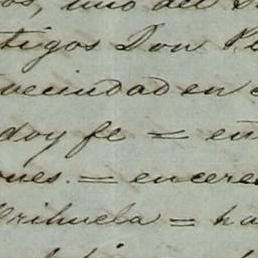 os, uno del
tigos Don Pe
vecindad en
doy fe = en
ones. = encere
Orihuela = ha